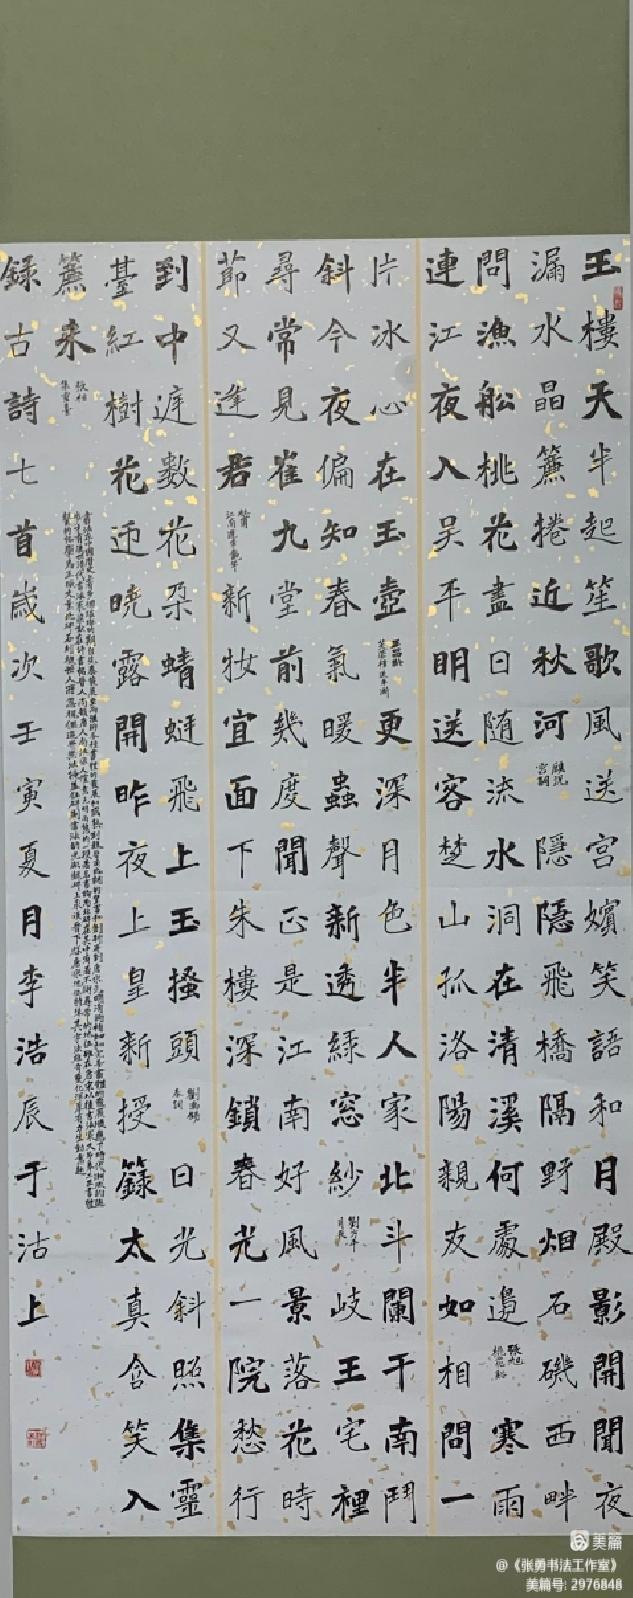 玉樓天半起笙歌風送宮嬪笑語和月殿影開聞夜
漏水晶簾捲近秋河 顧況 宮詞 隱隱飛橋隔野烟石磯西畔
問漁船桃花盡日随流水洞在清溪何處邊 張旭 桃花谿 寒雨
連江夜入吳平明送客楚山孤洛陽親友如相問一
片冰心在玉壺 王昌齡 芙蓉樓送辛漸 更深月色半人家北斗闌干南鬥
斜今夜偏知春氣暖蟲聲新透綠窓紗 劉方平 月夜 岐王宅裡
尋常見崔九堂前幾度聞正是江南好風景落花時
節又逢君 杜甫 江南逢李龜年 新妝宜面下朱樓深鎖春光一院愁行
到中庭數花朵蜻蜓飛上玉搔頭 劉禹錫 春詞 日光斜照集靈
臺紅樹花迎曉露開昨夜上皇新授籙太真含笑入
簾来 張祜 集靈臺
録古詩七首歲次壬寅夏月李浩辰于沽上
美篇
@《张勇书法工作室》
美篇号: 2976848